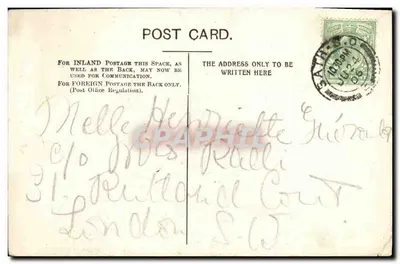 POST CARD.
FOR INLAND POSTAGE THIS SPACE, AS
WELL AS THE BACK, MAY NOW BE
USED FOR COMMUNICATION.
FOR FOREIGN POSTAGE THE BACK ONLY.
(Post Office Regulation).
THE ADDRESS ONLY TO BE
WRITTEN HERE
Melle Henriette
c/o Mrs Ralli
31. Rutland Court
London S.W